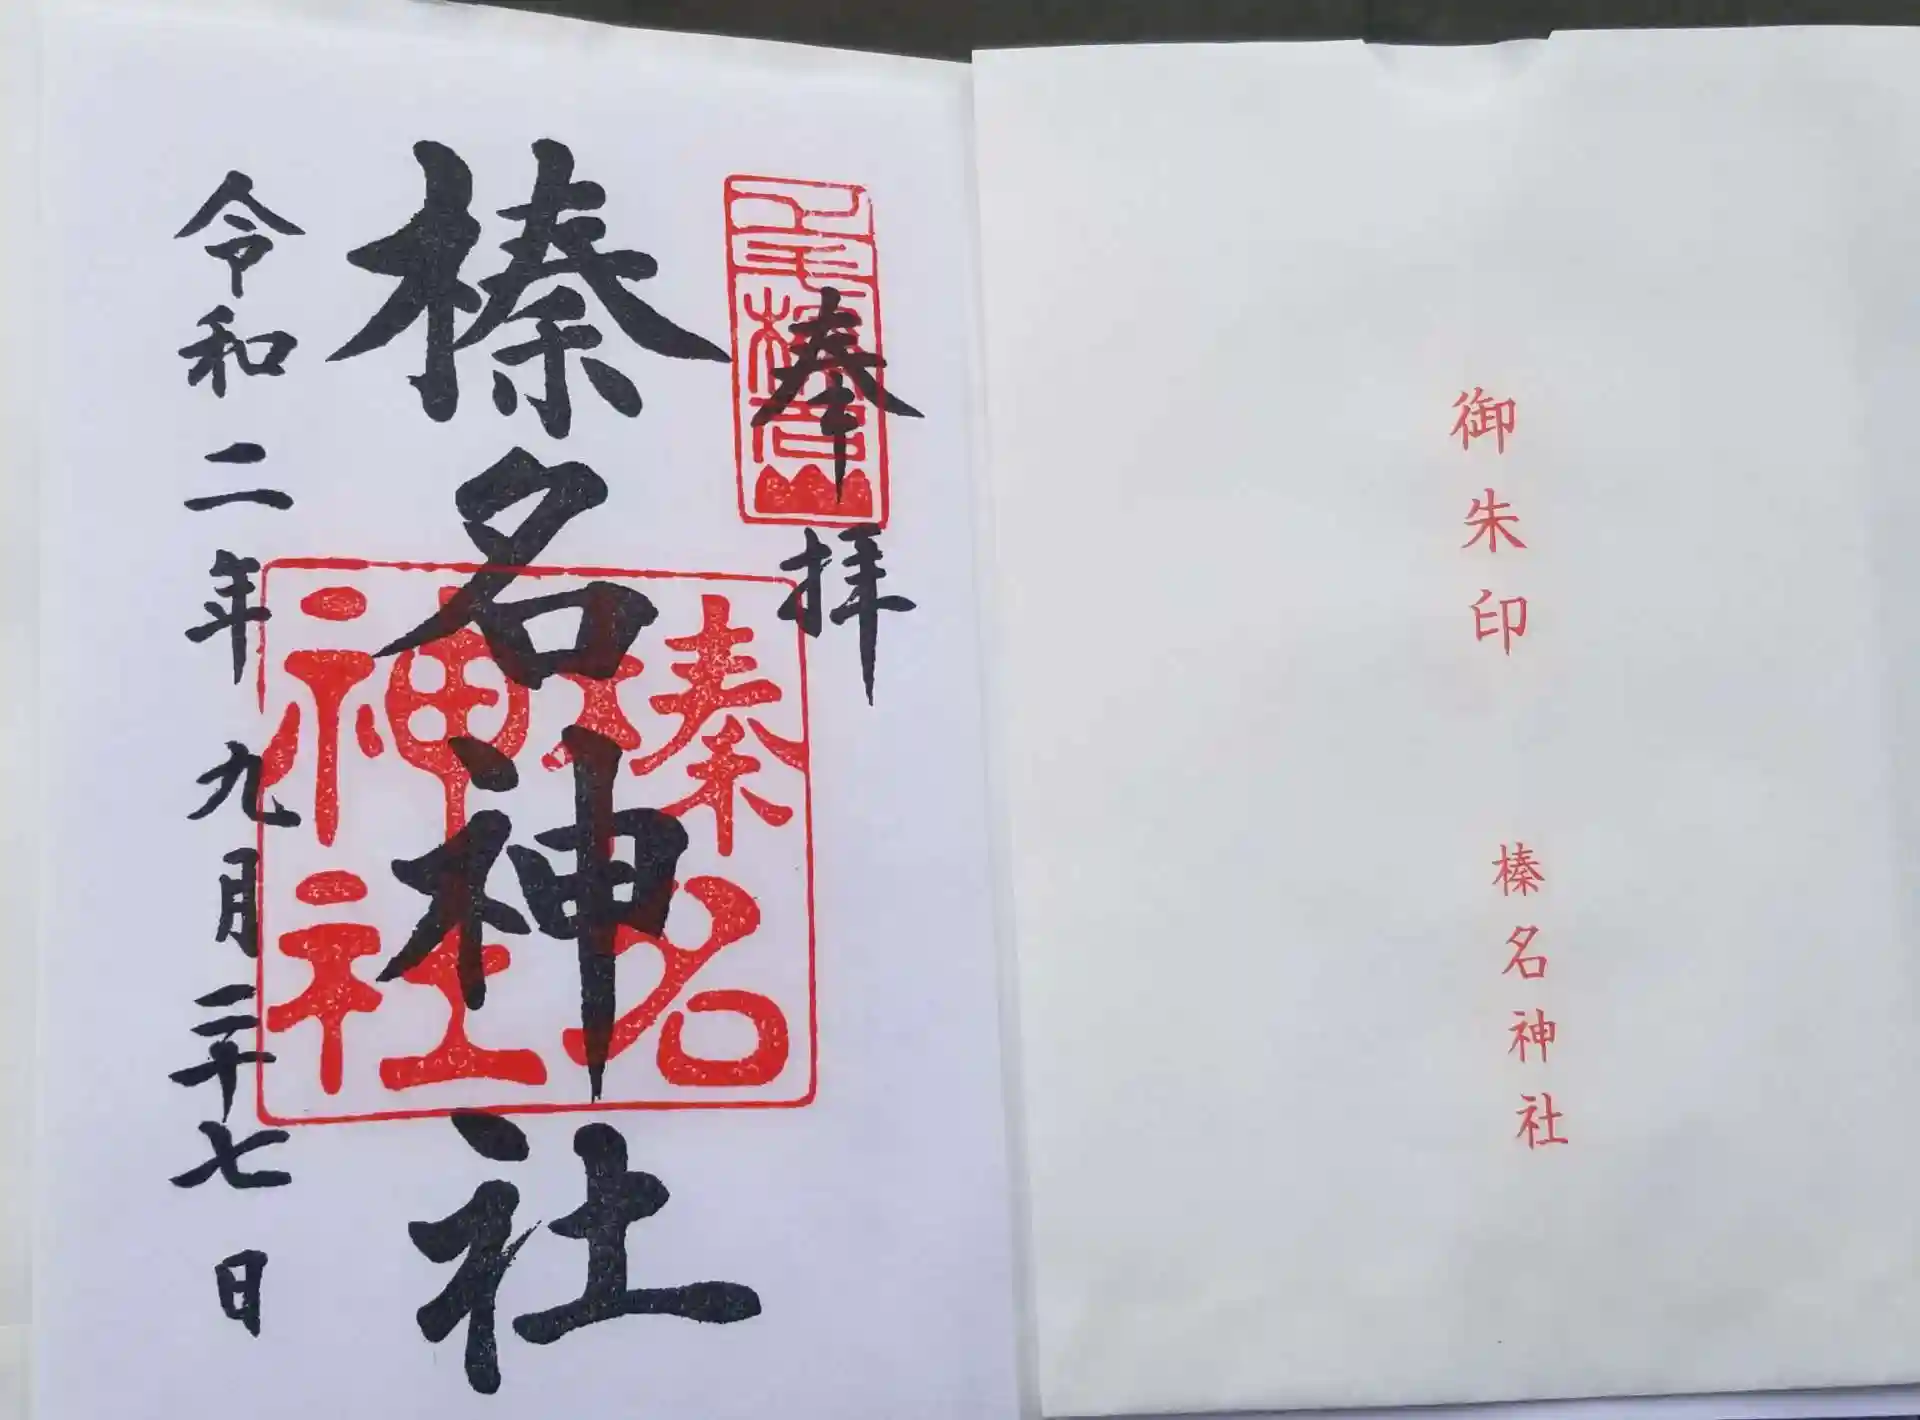 奉拝
榛名神社
令和二年九月二十七日
榛名
神社
御朱印
榛名神社